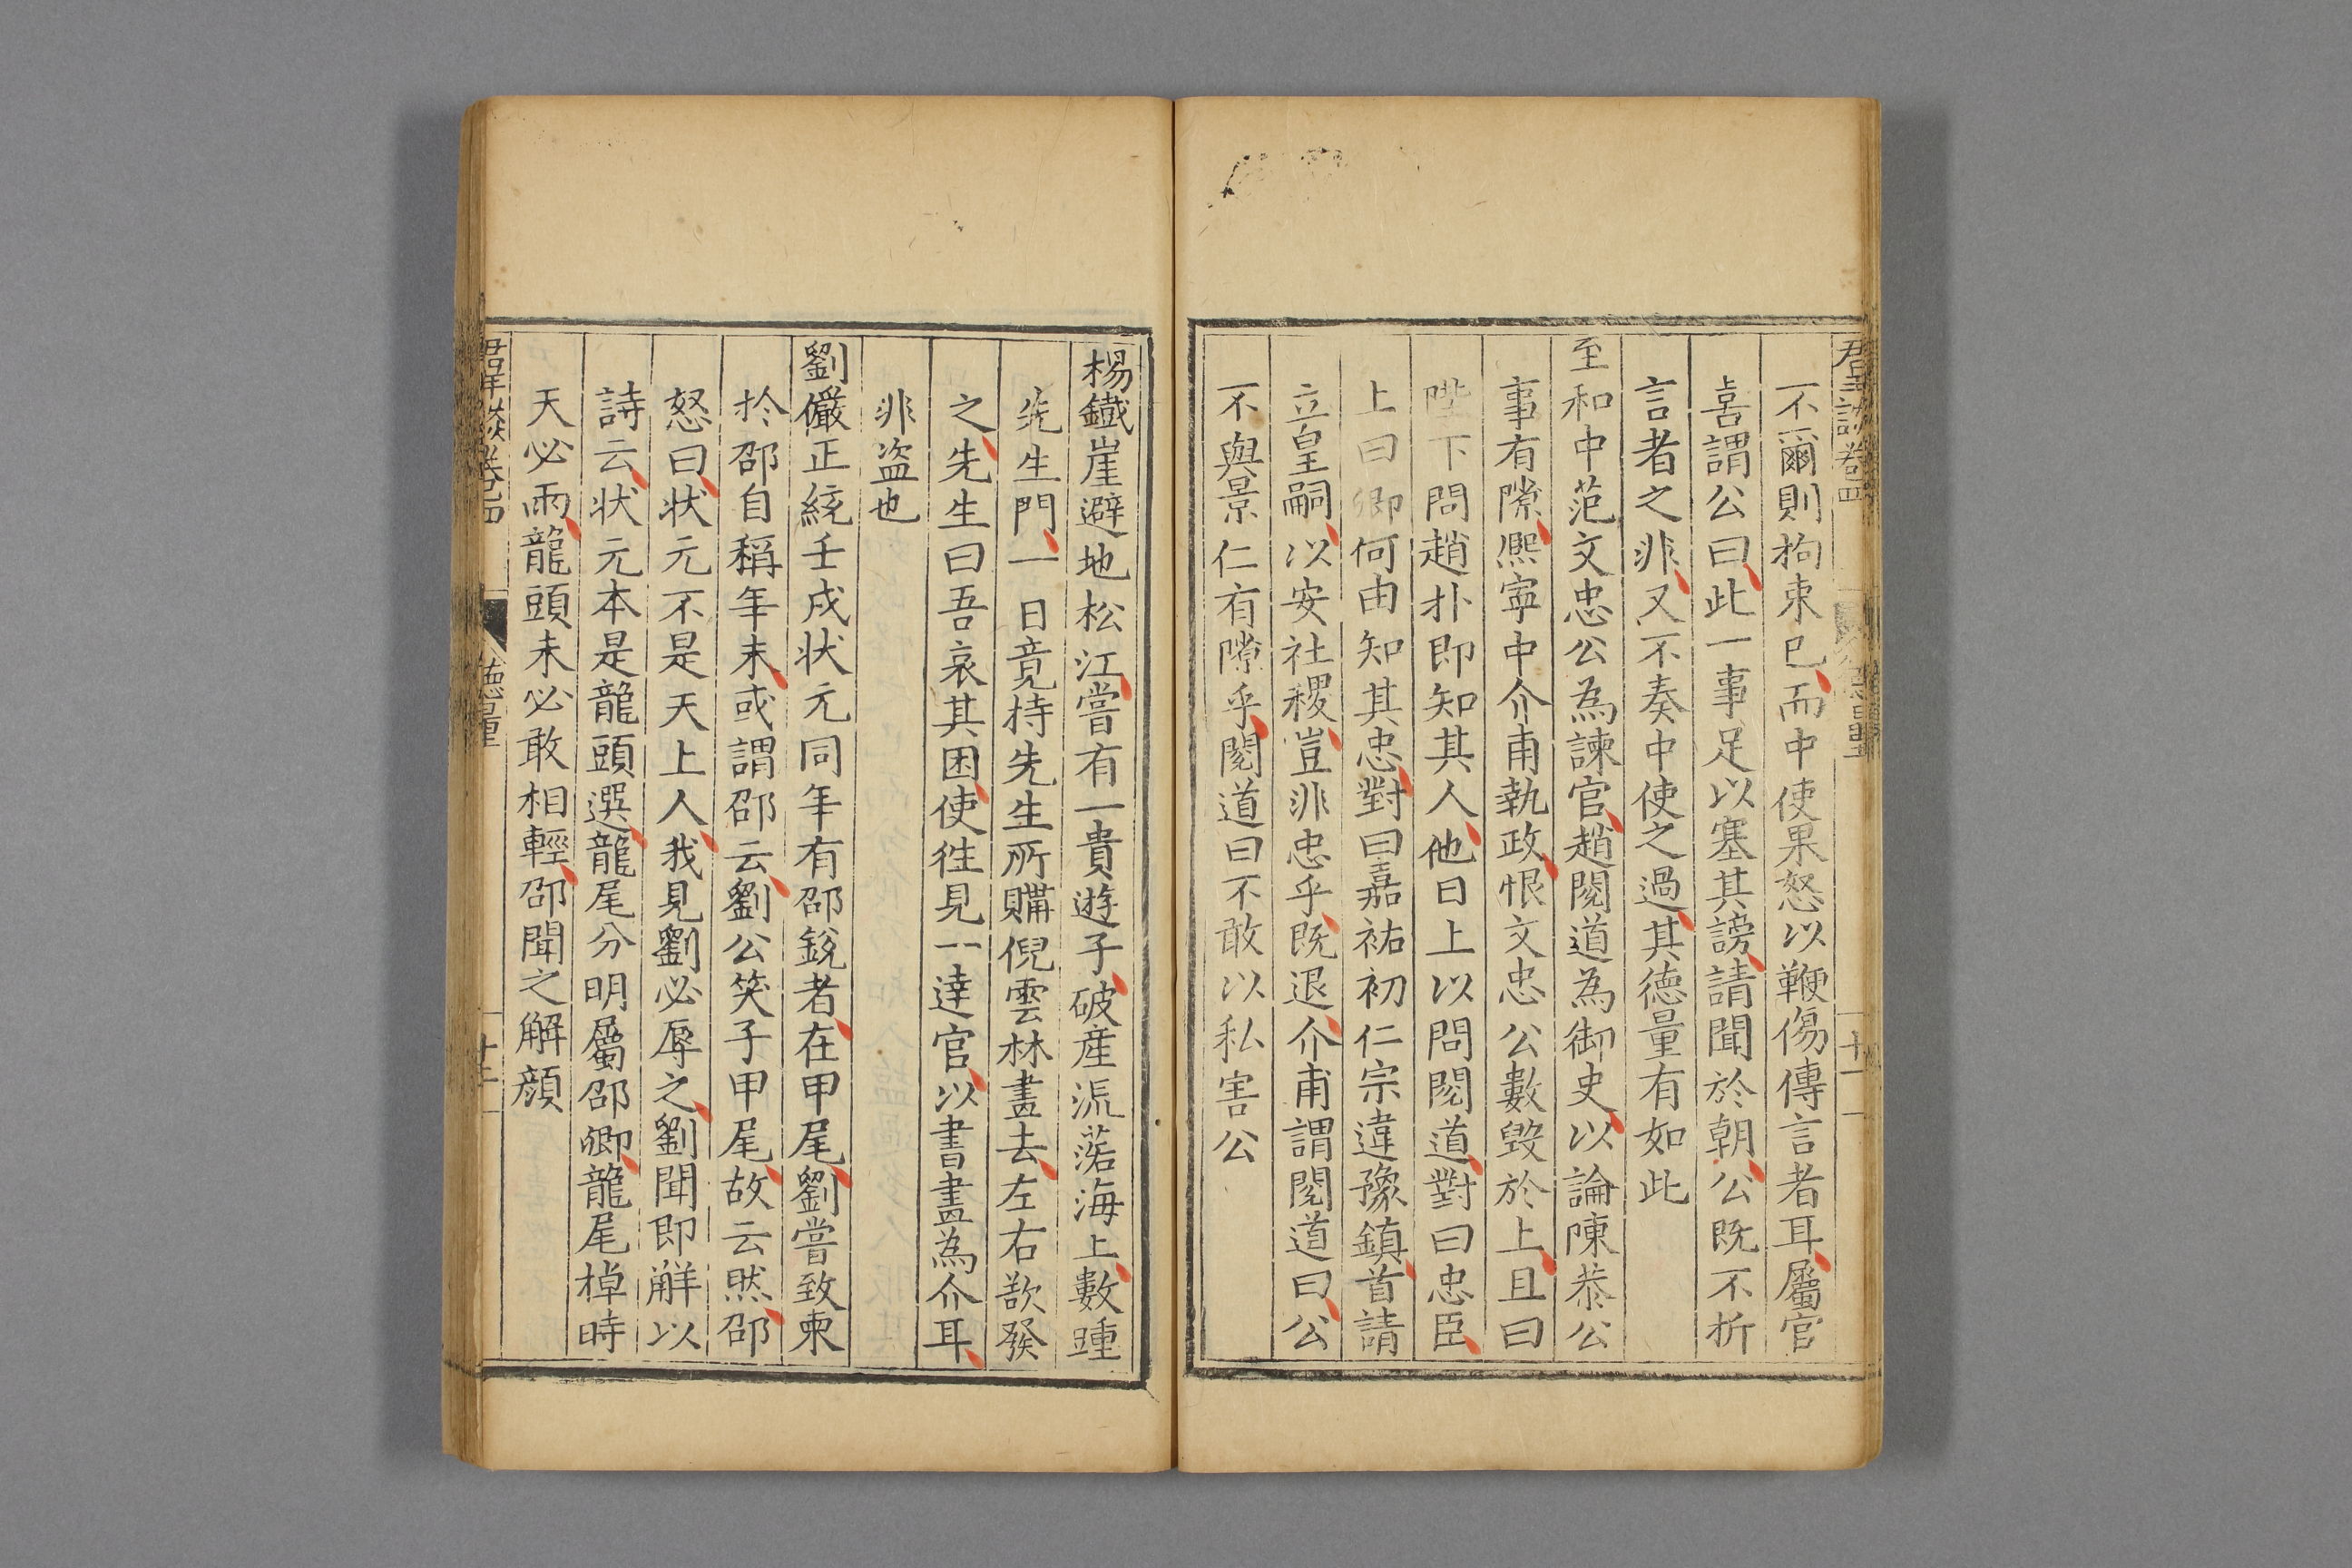 不爾則拘束已而中使果怒以鞭傷傳言者耳屬官
喜謂公曰此一事足以塞其謗請聞於朝公既不折
言者之非又不奏中使之過其德量有如此
至和中范文忠公為諫官趙閱道為御史以論陳恭公
事有隙熈寧中介甫執政恨文忠公數毀於上且曰
陛下問趙抃即知其人他日上以問閱道對曰忠臣
上曰卿何由知其忠對曰嘉祐初仁宗違豫鎮首請
立皇嗣以安社稷豈非忠乎既退介甫謂閱道曰公
不與景仁有隙乎閱道曰不敢以私害公
楊鐵崖避地松江嘗有一貴遊子破産流落海上數踵
先生門一日竟持先生所購倪雲林畫去左右欲發
之先生曰吾哀其困使徃見一達官以書畫為介耳
非盗也
劉儼正統壬戌状元同年有邵銳者在甲尾劉嘗致柬
於邵自稱年末或謂邵云劉公笑子甲尾故云然邵
怒曰状元不是天上人我見劉必辱之劉聞即觧以
詩云状元本是龍頭選龍尾分明屬邵卿龍尾棹時
天必雨龍頭未必敢相輕邵聞之解顔
群談卷四
德量